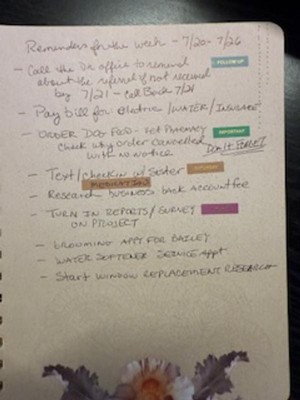 Reminders for the week - 7/20 - 7/26
- Call the Dr office to remind FOLLOW UP
about the referral if not received
by 7/21 - Call Back 7/21
- Pay bill for electric / WATER / INSURANCE
- ORDER DOG FOOD - PET PHARMACY IMPORTANT
Check why order cancelled Don't FORGET
with no notice
- Text/checkin w/ Sister
MEDICATION
- Research business bank account fee
- TURN IN REPORTS / SURVEY
ON PROJECT
- GROOMING APPT FOR BAILEY
- WATER SOFTENER SERVICE Appt
- Start WINDOW REPLACEMENT RESEARCH